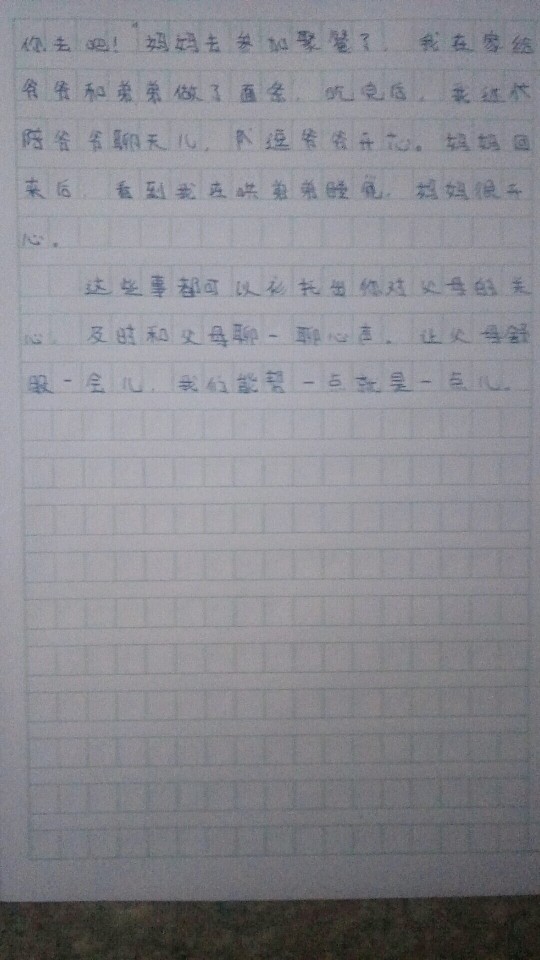 你去吧！"妈妈去参加聚餐了，我在家给
爷爷和弟弟做了面条，吃完后，我还代
陪爷爷聊天儿，逗爷爷开心。妈妈回
来后，看到我在哄弟弟睡觉，妈妈很开
心。
这些事都可以衬托出你对父母的关
心，及时和父母聊一聊心声。让父母舒
服一会儿，我们能帮一点就是一点儿。